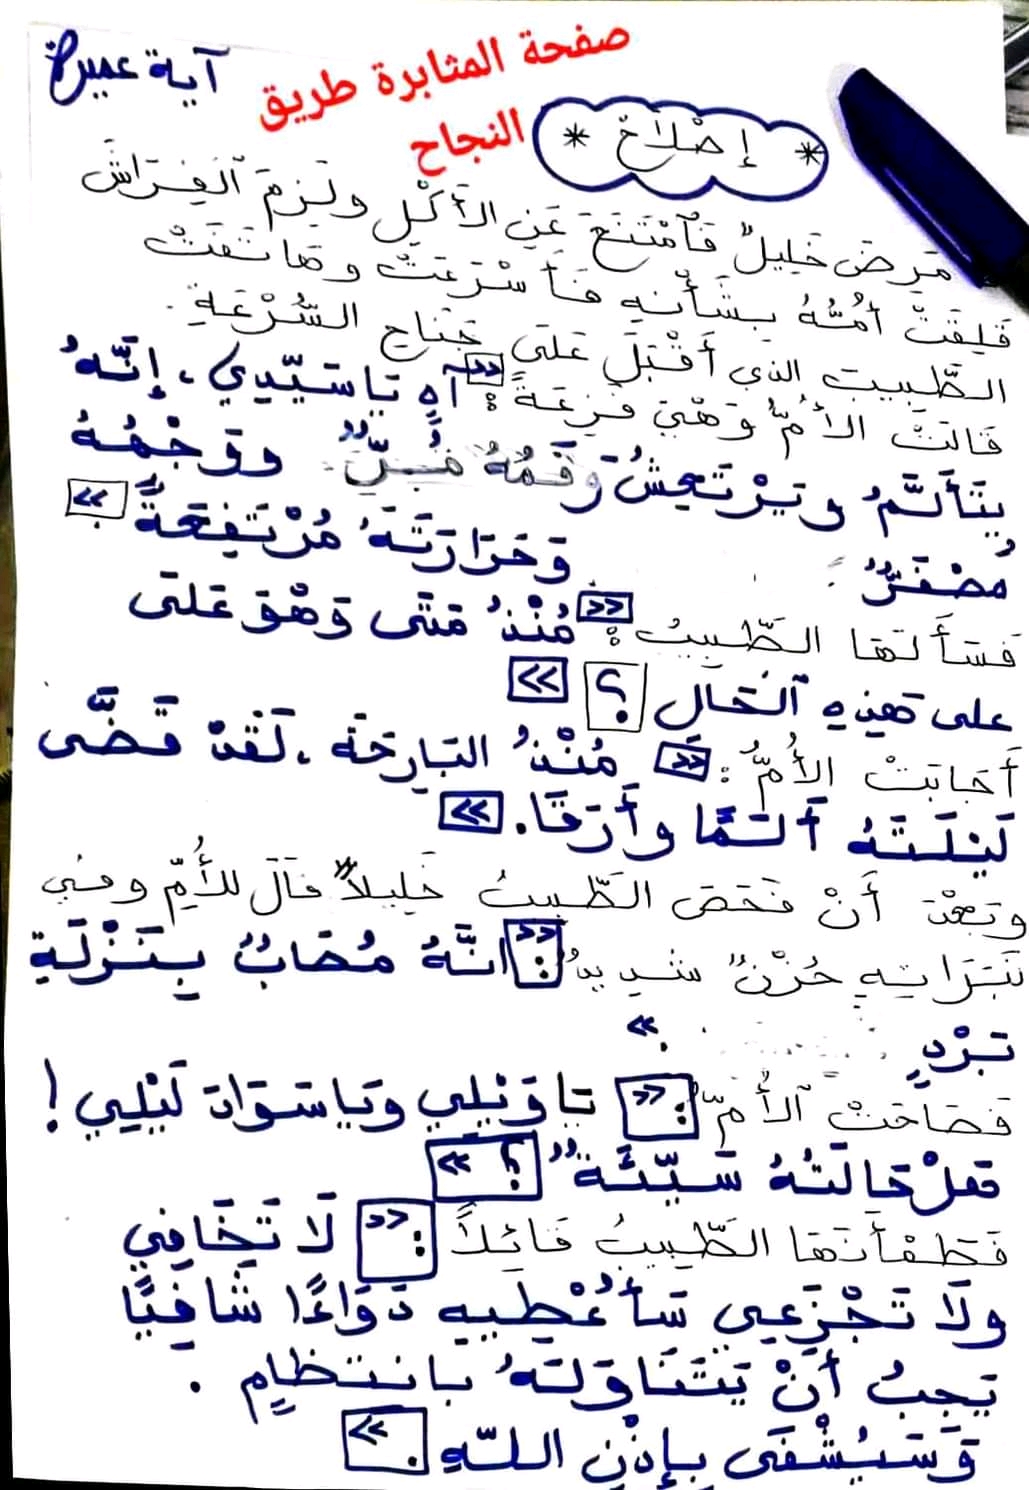 آية عميرة
صفحة المثابرة طريق
النجاح
* إِصْلَاحٌ *
مَرِضَ خَلِيلٌ فَٱمْتَنَعَ عَنِ الأَكْلِ ولَزِمَ الفِرَاشَ
قَلِقَتْ أُمُّهُ بِشَأْنِهِ فَأَسْرَعَتْ وهَاتَفَتْ
الطَّبِيبَ الذي أَقْبَلَ عَلَى جَنَاحِ السُّرْعَةِ.
قَالَتْ الأُمُّ وَهْيَ فَزِعَةً : «آهٍ يَا سَيِّدِي، إِنَّهُ
يتَأَلَّمُ ويَرْتَعِشُ وَفَمُهُ مُرٌّ ووَجْهُهُ
مُصْفَرٌّ وَحَرَارَتُهُ مُرْتَفِعَةً. »
فَسَأَلَهَا الطَّبِيبُ : «مُنْذُ مَتَى وَهْوَ عَلَى
على هَذِهِ ٱلحَالِ ؟ »
أَجَابَتْ الأُمُّ : « مُنْذُ البَارِحَة ، لَقَدْ قَضَّى
لَيْلَتَهُ أَلَمًا وأَرَقًا. »
وبَعْدَ أَنْ فَحَصَ الطَّبِيبُ خَلِيلاً قَالَ للأُمِّ وفي
نَبَرَاتِهِ حُزْنٌ شديدُ : « انَّهُ مُصَابٌ بِنَزْلَةِ
بَرْدٍ . »
فَصَاحَتْ ٱلأُمُّ : « يَا وَيْلِي ويَا سَوَادَ لَيْلِي !
هَلْ حَالَتُهُ سَيِّئَةٌ ؟ »
فَطَمْأَنَهَا الطَّبِيبُ قَائِلاً : « لَا تَخَافِي
ولَا تَجْزَعِي سَأُعْطِيهِ دَوَاءًا شَافِيًا
يَجِبُ أَنْ يَتَنَاوَلَهُ بانتظامٍ .
وَسَيُشْفَى بِإِذْنِ اللّهِ . »